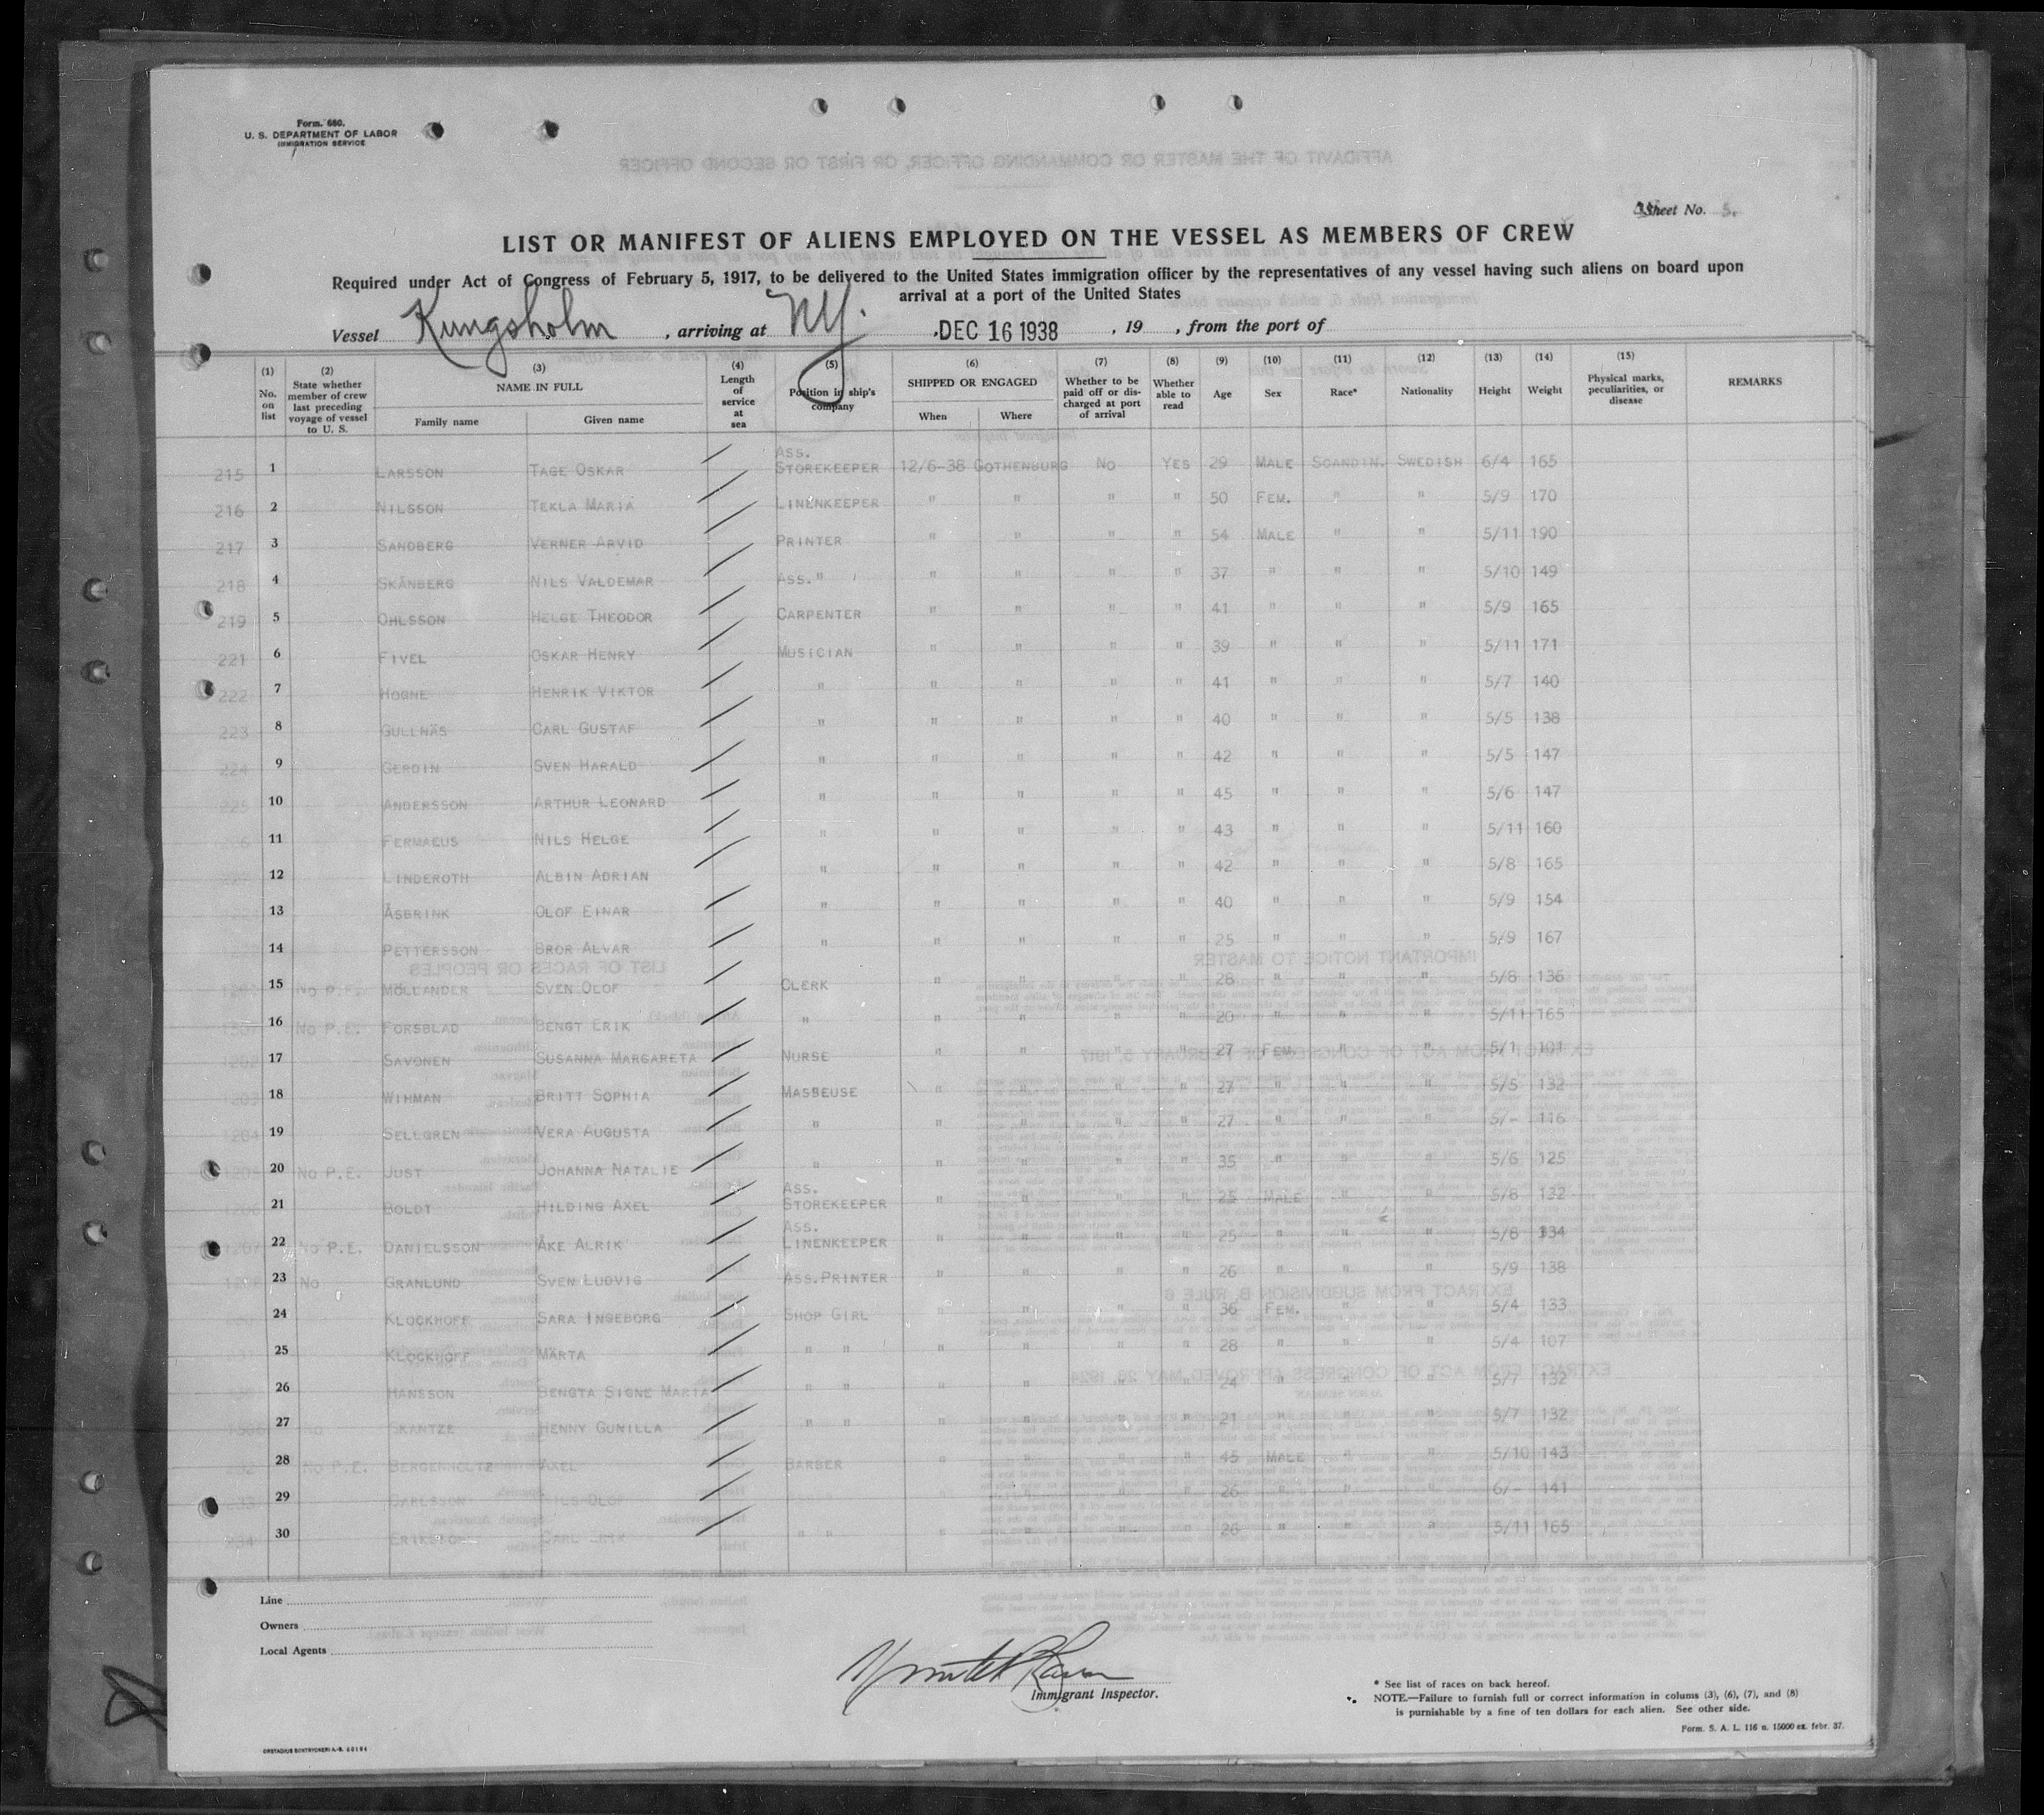 Form. 680.
U. S. DEPARTMENT OF LABOR
IMMIGRATION SERVICE
Sheet No. 5.
LIST OR MANIFEST OF ALIENS EMPLOYED ON THE VESSEL AS MEMBERS OF CREW
Required under Act of Congress of February 5, 1917, to be delivered to the United States immigration officer by the representatives of any vessel having such aliens on board upon
arrival at a port of the United States
Vessel Kungsholm , arriving at NY. , DEC 16 1938 , 19 , from the port of
(1) No. on list (2) State whether member of crew last preceding voyage of vessel to U. S. (3) NAME IN FULL Family name Given name (4) Length of service at sea (5) Position in ship's company (6) SHIPPED OR ENGAGED When Where (7) Whether to be paid off or discharged at port of arrival (8) Whether able to read (9) Age (10) Sex (11) Race* (12) Nationality (13) Height (14) Weight (15) Physical marks, peculiarities, or disease REMARKS
215 1 LARSSON TAGE OSKAR ASS. STOREKEEPER 12/6-38 GOTHENBURG NO YES 29 MALE SCANDIN. SWEDISH 6/4 165
216 2 NILSSON TEKLA MARIA LINENKEEPER " " " " 50 FEM. " " 5/9 170
217 3 SANDBERG VERNER ARVID PRINTER " " " " 54 MALE " " 5/11 190
218 4 SKÅNBERG NILS VALDEMAR ASS. " " " " " 37 " " " 5/10 149
219 5 OHLSSON HELGE THEODOR CARPENTER " " " " 41 " " " 5/9 165
221 6 FIVEL OSKAR HENRY MUSICIAN " " " " 39 " " " 5/11 171
222 7 HOGNE HENRIK VIKTOR " " " " " 41 " " " 5/7 140
223 8 GULLNÄS CARL GUSTAF " " " " " 40 " " " 5/5 138
224 9 GERDIN SVEN HARALD " " " " " 42 " " " 5/5 147
225 10 ANDERSSON ARTHUR LEONARD " " " " " 45 " " " 5/6 147
11 FERMAEUS NILS HELGE " " " " " 43 " " " 5/11 160
12 LINDEROTH ALBIN ADRIAN " " " " " 42 " " " 5/8 165
13 ÅSBRINK OLOF EINAR " " " " " 40 " " " 5/9 154
14 PETTERSSON BROR ALVAR " " " " " 25 " " " 5/9 167
15 NO P.E. MÖLLANDER SVEN OLOF CLERK " " " " 28 " " " 5/8 136
16 NO P.E. FORSBLAD BENGT ERIK " " " " " 20 " " " 5/11 165
1202 17 SAVONEN SUSANNA MARGARETA NURSE " " " " 27 FEM. " " 5/1 101
1203 18 WIHMAN BRITT SOPHIA MASSEUSE " " " " 27 " " " 5/5 132
1204 19 SELLGREN VERA AUGUSTA " " " " " 27 " " " 5/- 116
1205 20 NO P.E. JUST JOHANNA NATALIE " " " " " 35 " " " 5/6 125
1206 21 BOLDT HILDING AXEL ASS. STOREKEEPER " " " " 25 MALE " " 5/8 132
1207 22 NO P.E. DANIELSSON ÅKE ALRIK ASS. LINENKEEPER " " " " 25 " " " 5/8 134
23 NO GRANLUND SVEN LUDVIG ASS. PRINTER " " " " 26 " " " 5/9 138
24 KLOCKHOFF SARA INGEBORG SHOP GIRL " " " " 36 FEM. " " 5/4 133
25 KLOCKHOFF MÄRTA " " " " " " 28 " " " 5/4 107
26 HANSSON BENGTA SIGNE MARIA " " " " " " 24 " " " 5/7 132
27 NO SKANTZE HENNY GUNILLA " " " " " " 21 " " " 5/7 132
28 NO P.E. BERGENHOLTZ AXEL BARBER " " " " 45 MALE " " 5/10 143
29 CARLSSON NILS OLOF " " " " 26 " " " 6/- 141
234 30 ERIKSSON CARL ERIK " " " " " " 26 " " " 5/11 165
Line
Owners
Local Agents
Immigrant Inspector.
* See list of races on back hereof.
NOTE.—Failure to furnish full or correct information in colums (3), (6), (7), and (8)
is purnishable by a fine of ten dollars for each alien. See other side.
Form. S. A. L. 116 n. 15000 ex. febr. 37.